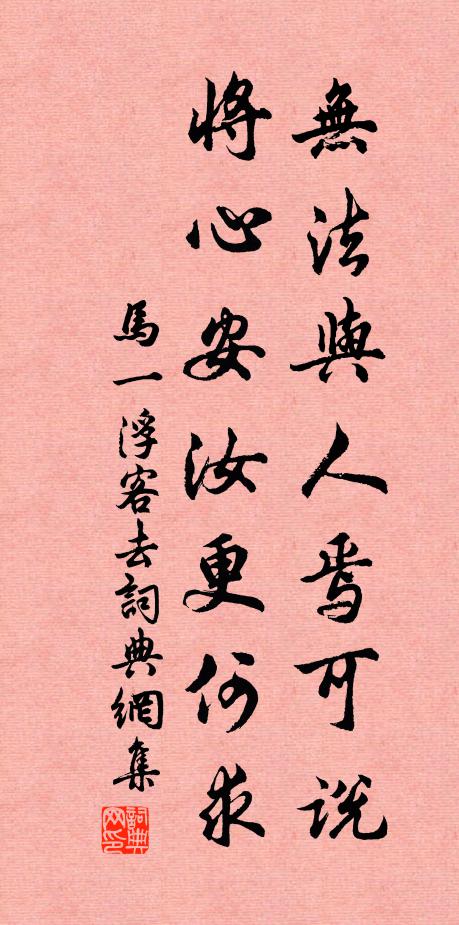 無法與人焉可說
將心安汝更何求
馬一浮客去詞典網集
詞典网印